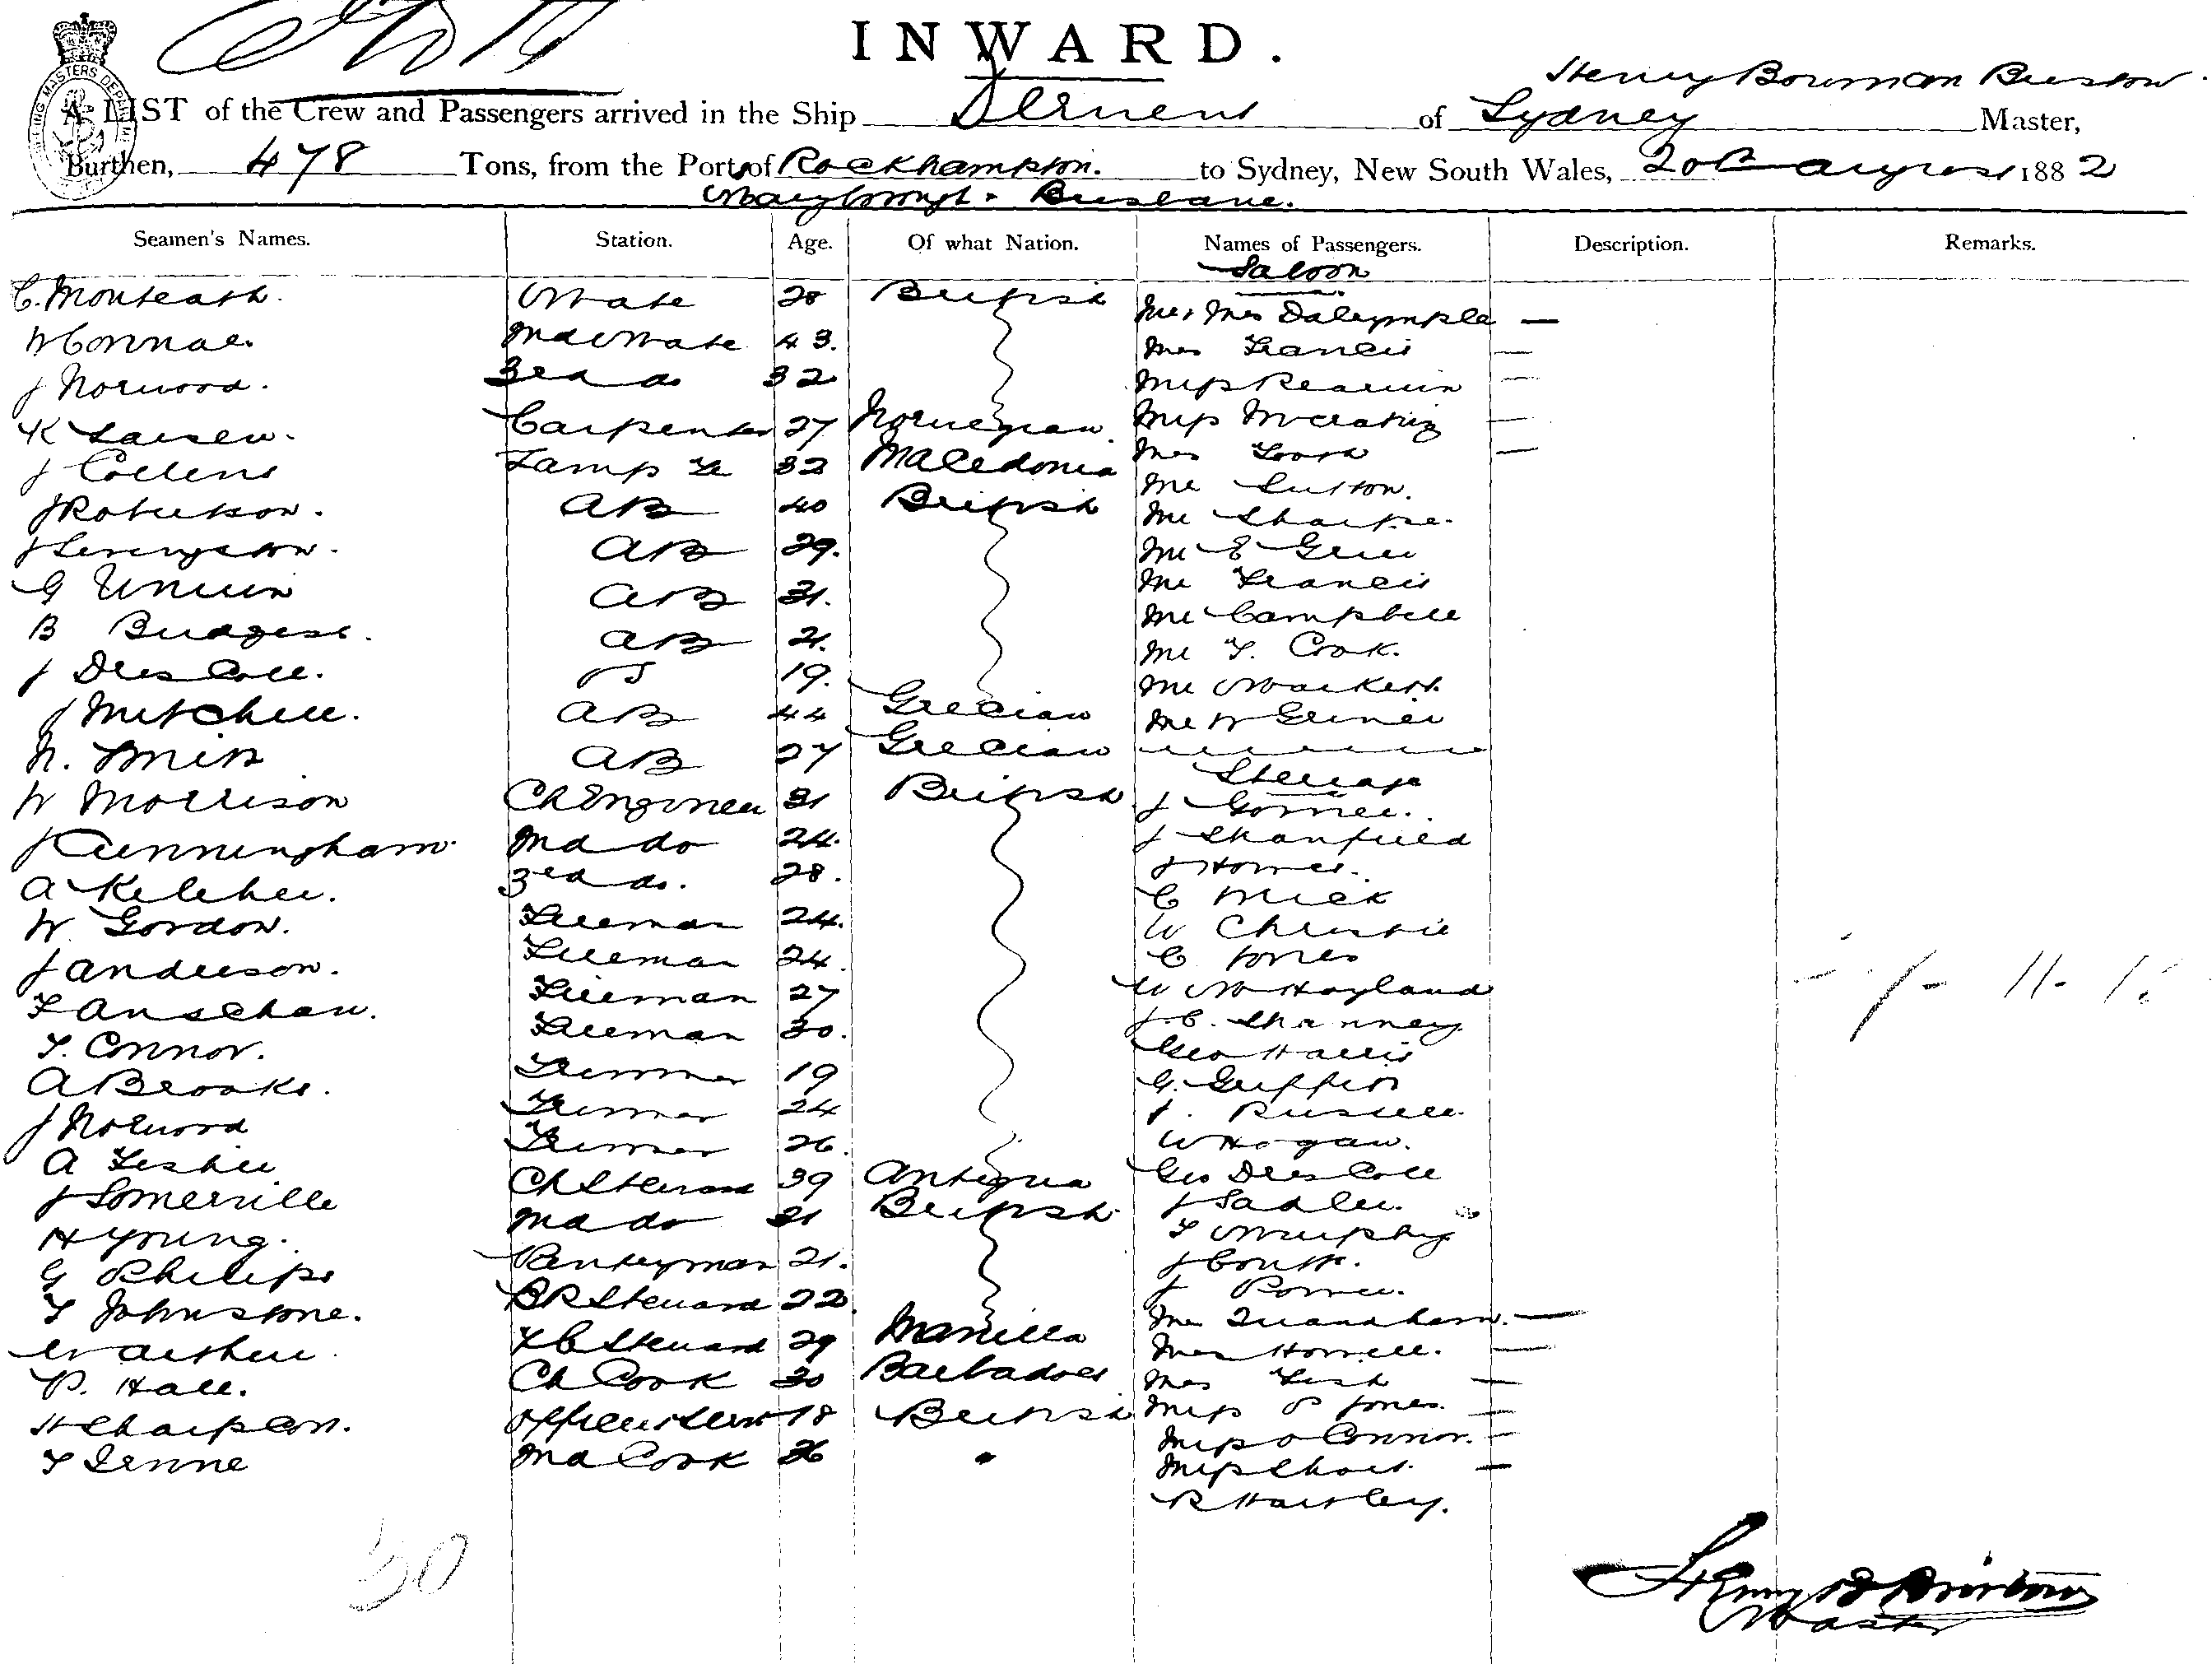 INWARD.
Henry Bowman Bristow
A LIST of the Crew and Passengers arrived in the Ship Derwent of Sydney Master,
Burthen, 478 Tons, from the Ports of Rockhampton. to Sydney, New South Wales, 20th August 1882
Maryborough & Brisbane.
Seamen's Names. Station. Age. Of what Nation. Names of Passengers. Description. Remarks.
Saloon
C. Monteath. Mate 28 British Mr & Mrs Dalrymple —
W Connal. 2nd Mate 43. Mrs Francis —
J Norwood. 3rd do 32 Miss —
K Larsen. Carpenter 27 Norwegian Miss —
J Collens Lamp Tr 32 Macedonia Mrs —
J Robertson. AB 40 British Mr Sutton.
J Levingston. AB 29. Mr Sharpe.
G Unwin AB 31. Mr E Greer
B Budgest. AB 21. Mr Francis
J Driscoll. OS 19. Mr Campbell
J Mitchell. AB 44 Grecian Mr T. Cook.
N. Smith AB 27 Grecian Mr Mackett.
W Morrison Ch Engineer 31 British Mr W Greiner
J Cunningham 2nd do 24. Steerage
A Keleher. 3rd do. 28. J Gorrner.
W. Gordon. Fireman 24. J Stanfield
J Anderson. Fireman 24. J Homer.
F Anschau. Fireman 27 C Mick
T. Connor. Fireman 30. W Christie
A Brooks. Trimmer 19 C Jones
J Norwood Trimmer 24 W M Hayland
A Leslie Trimmer 26. J. C. Shanney
J Somerville Ch Steward 39 Antigua Geo Harris
H Young. 2nd do 21 British G. Griffin
G Philips Pantryman 21. J. Russell.
T Johnstone. BR Steward 22 W Hogan.
W Arthur FC Steward 29 Manilla Geo Driscoll
P. Hall. Ch Cook 30 Barbadoes J Sadler.
H Sharpson. Officers Servt 18 British T Murphy
T Lenne 2nd Cook 26 " J Coutts.
J Power.
Mrs —
Mrs Howell. —
Mrs Fish —
Miss P Jones. —
Miss O Connor. —
Miss Short. —
R Hartley.
30
Henry B Bristow
Master